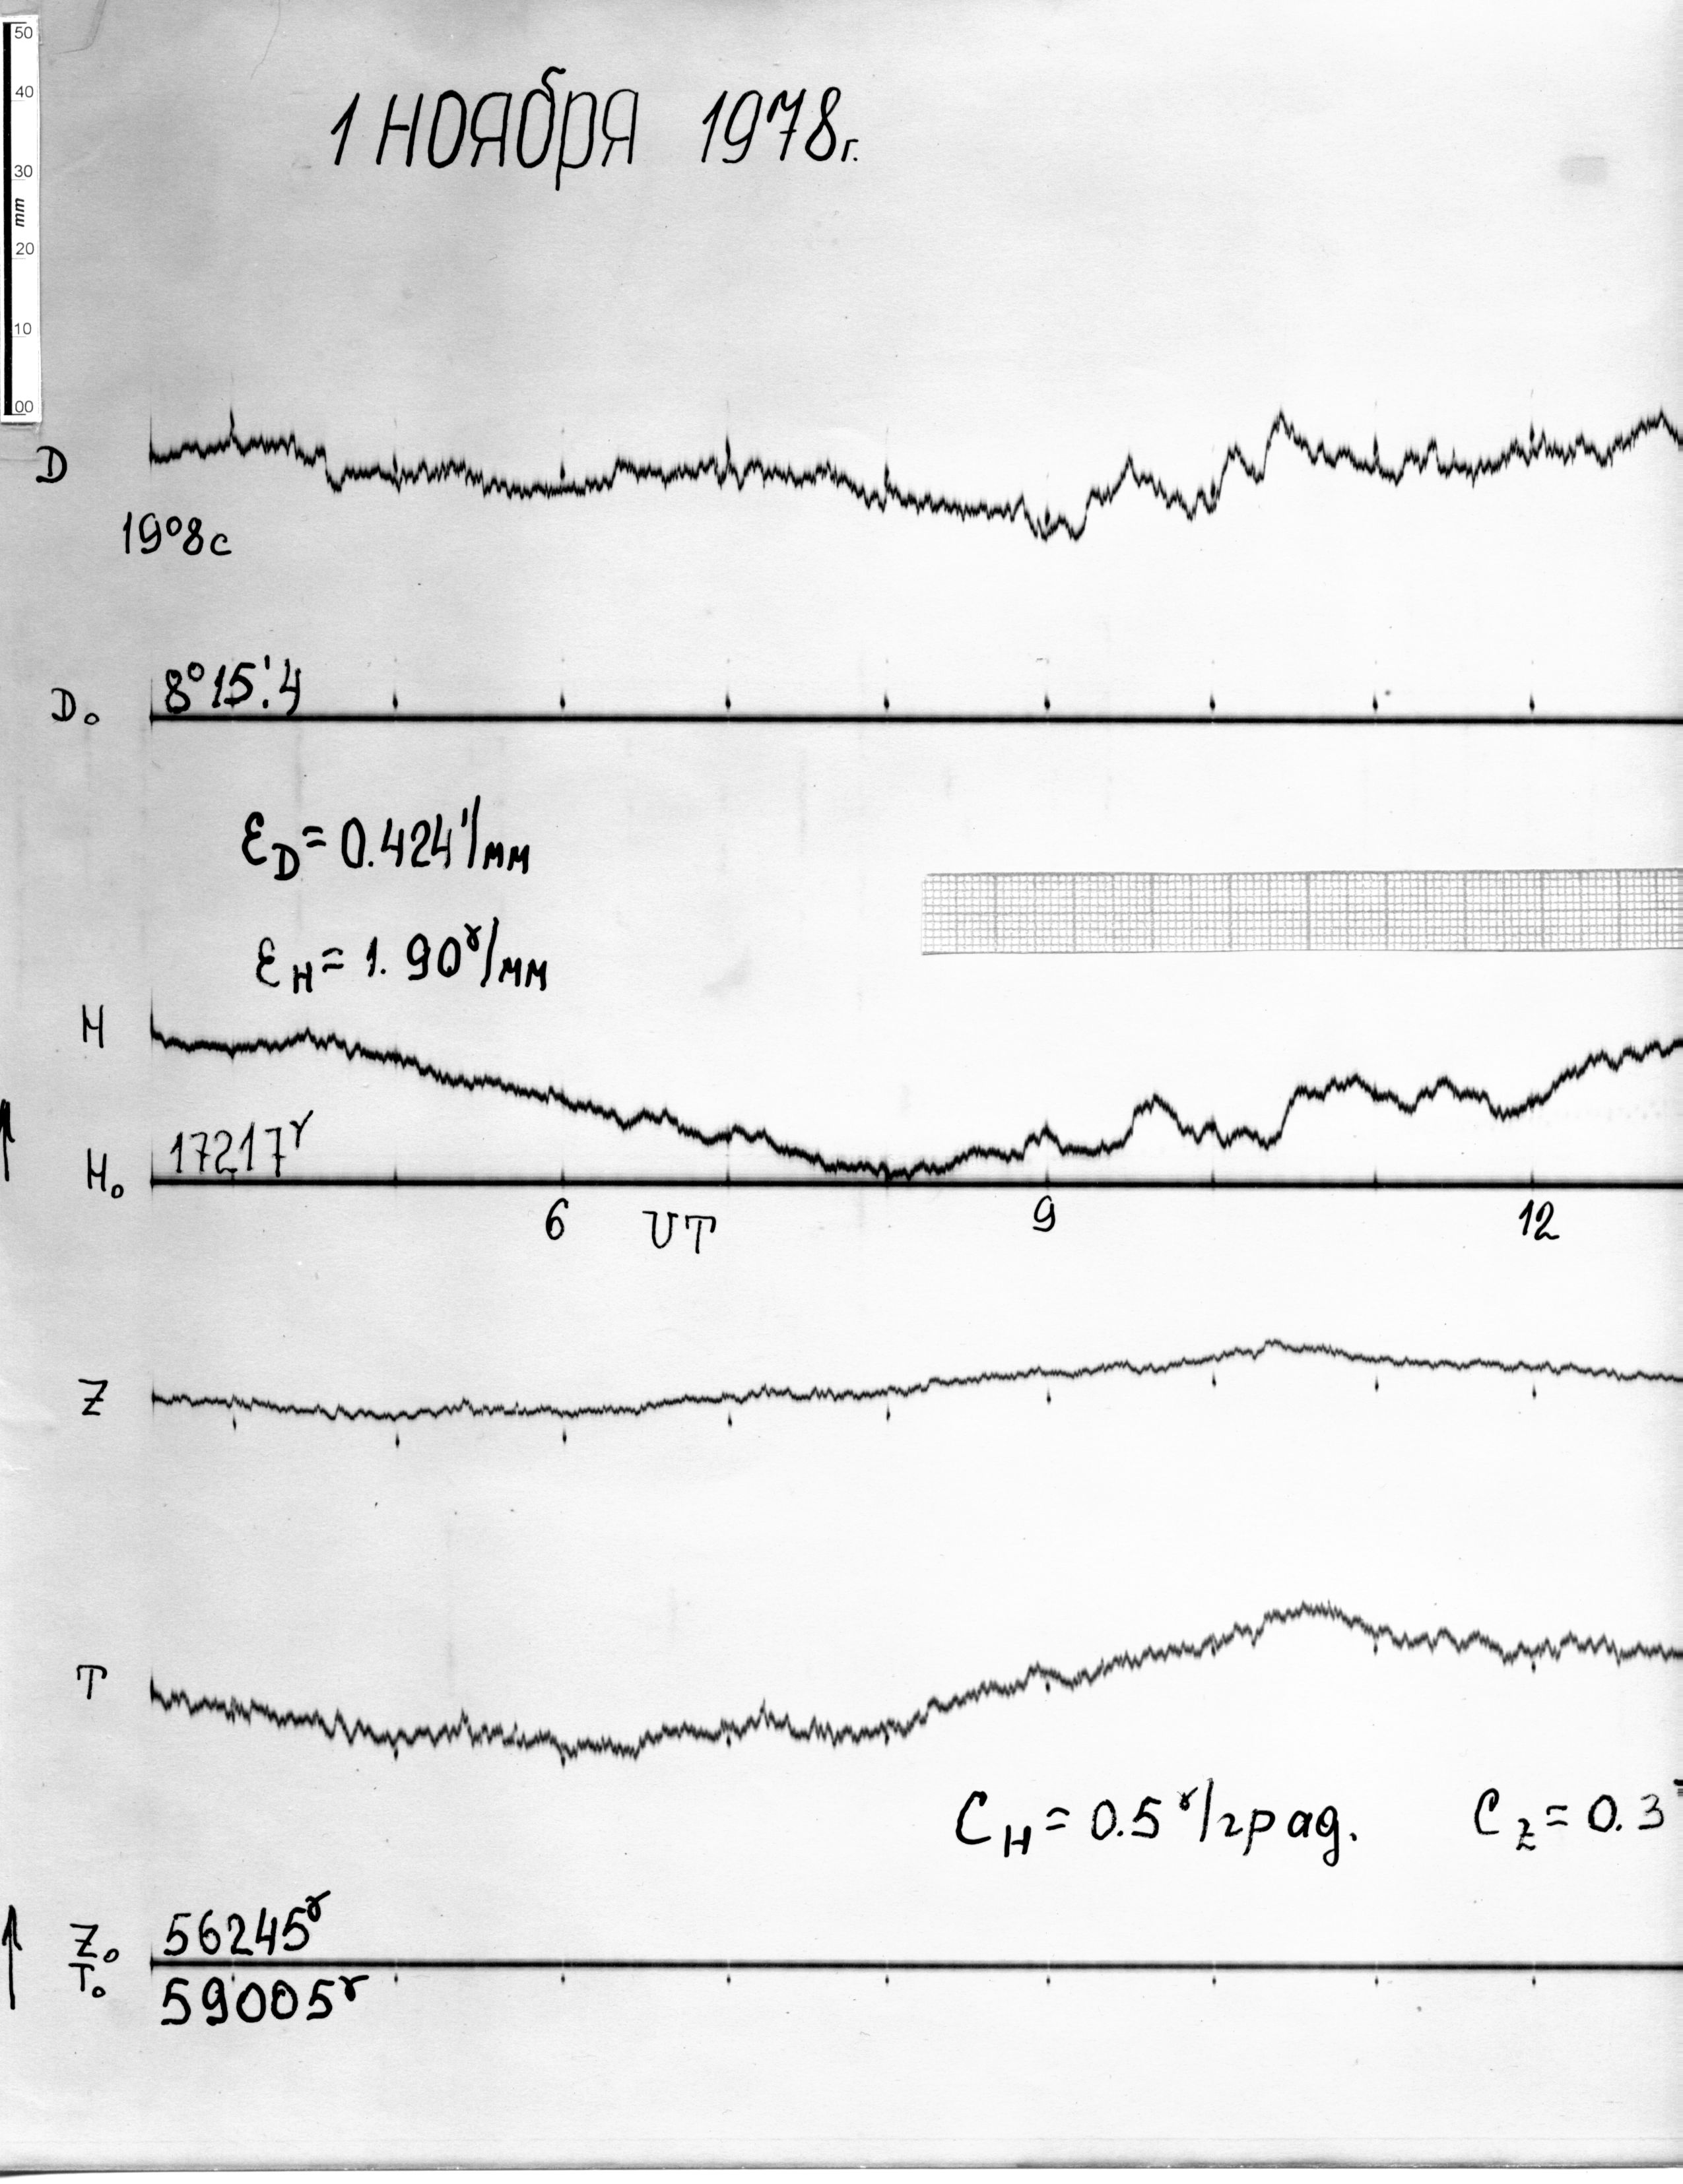 50
40
30
mm
20
10
00
1 ноября 1978г.
D
19°8с
8°15!4
D₀
ε_D = 0.424'/мм
ε_H = 1.90ˠ/мм
H
17217ˠ
H₀
6 UT 9 12
Z
T
C_H = 0.5ˠ/град. C_Z = 0.3
Z₀ 56245ˠ
T₀ 59005ˠ